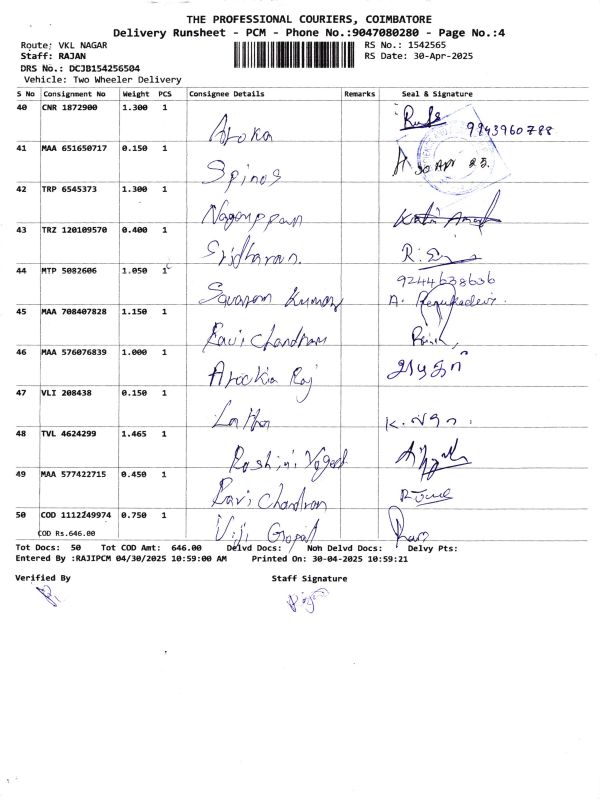 THE PROFESSIONAL COURIERS, COIMBATORE
Delivery Runsheet - PCM - Phone No.:9047080280 - Page No.:4
Route: VKL NAGAR
RS No.: 1542565
Staff: RAJAN
RS Date: 30-Apr-2025
DRS No.: DCJB154256504
Vehicle: Two Wheeler Delivery
S No Consignment No Weight PCS Consignee Details Remarks Seal & Signature
40 CNR 1872900 1.300 1
9943960788
41 MAA 651650717 0.150 1 Spinos 30 APR 25.
42 TRP 6545373 1.300 1
43 TRZ 120109570 0.400 1 Sridharan.
44 MTP 5082606 1.050 1 9244638636
Kumar A. Renukadevi.
45 MAA 708407828 1.150 1 Ravi Chandran
46 MAA 576076839 1.000 1 Arockia Raj
47 VLI 208438 0.150 1 Latha
48 TVL 4624299 1.465 1 Roshini
49 MAA 577422715 0.450 1 Ravi Chandran
50 COD 1112249974 0.750 1 Viji Gopal
COD Rs.646.00
Tot Docs: 50 Tot COD Amt: 646.00 Delvd Docs: Non Delvd Docs: Delvy Pts:
Entered By :RAJIPCM 04/30/2025 10:59:00 AM Printed On: 30-04-2025 10:59:21
Verified By Staff Signature